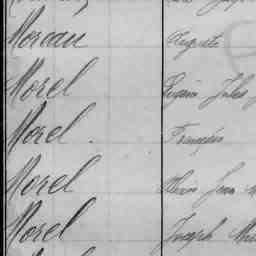 Moreau Auguste
Morel Eugène Jules
Morel François
Morel Alexis Jean
Morel Joseph